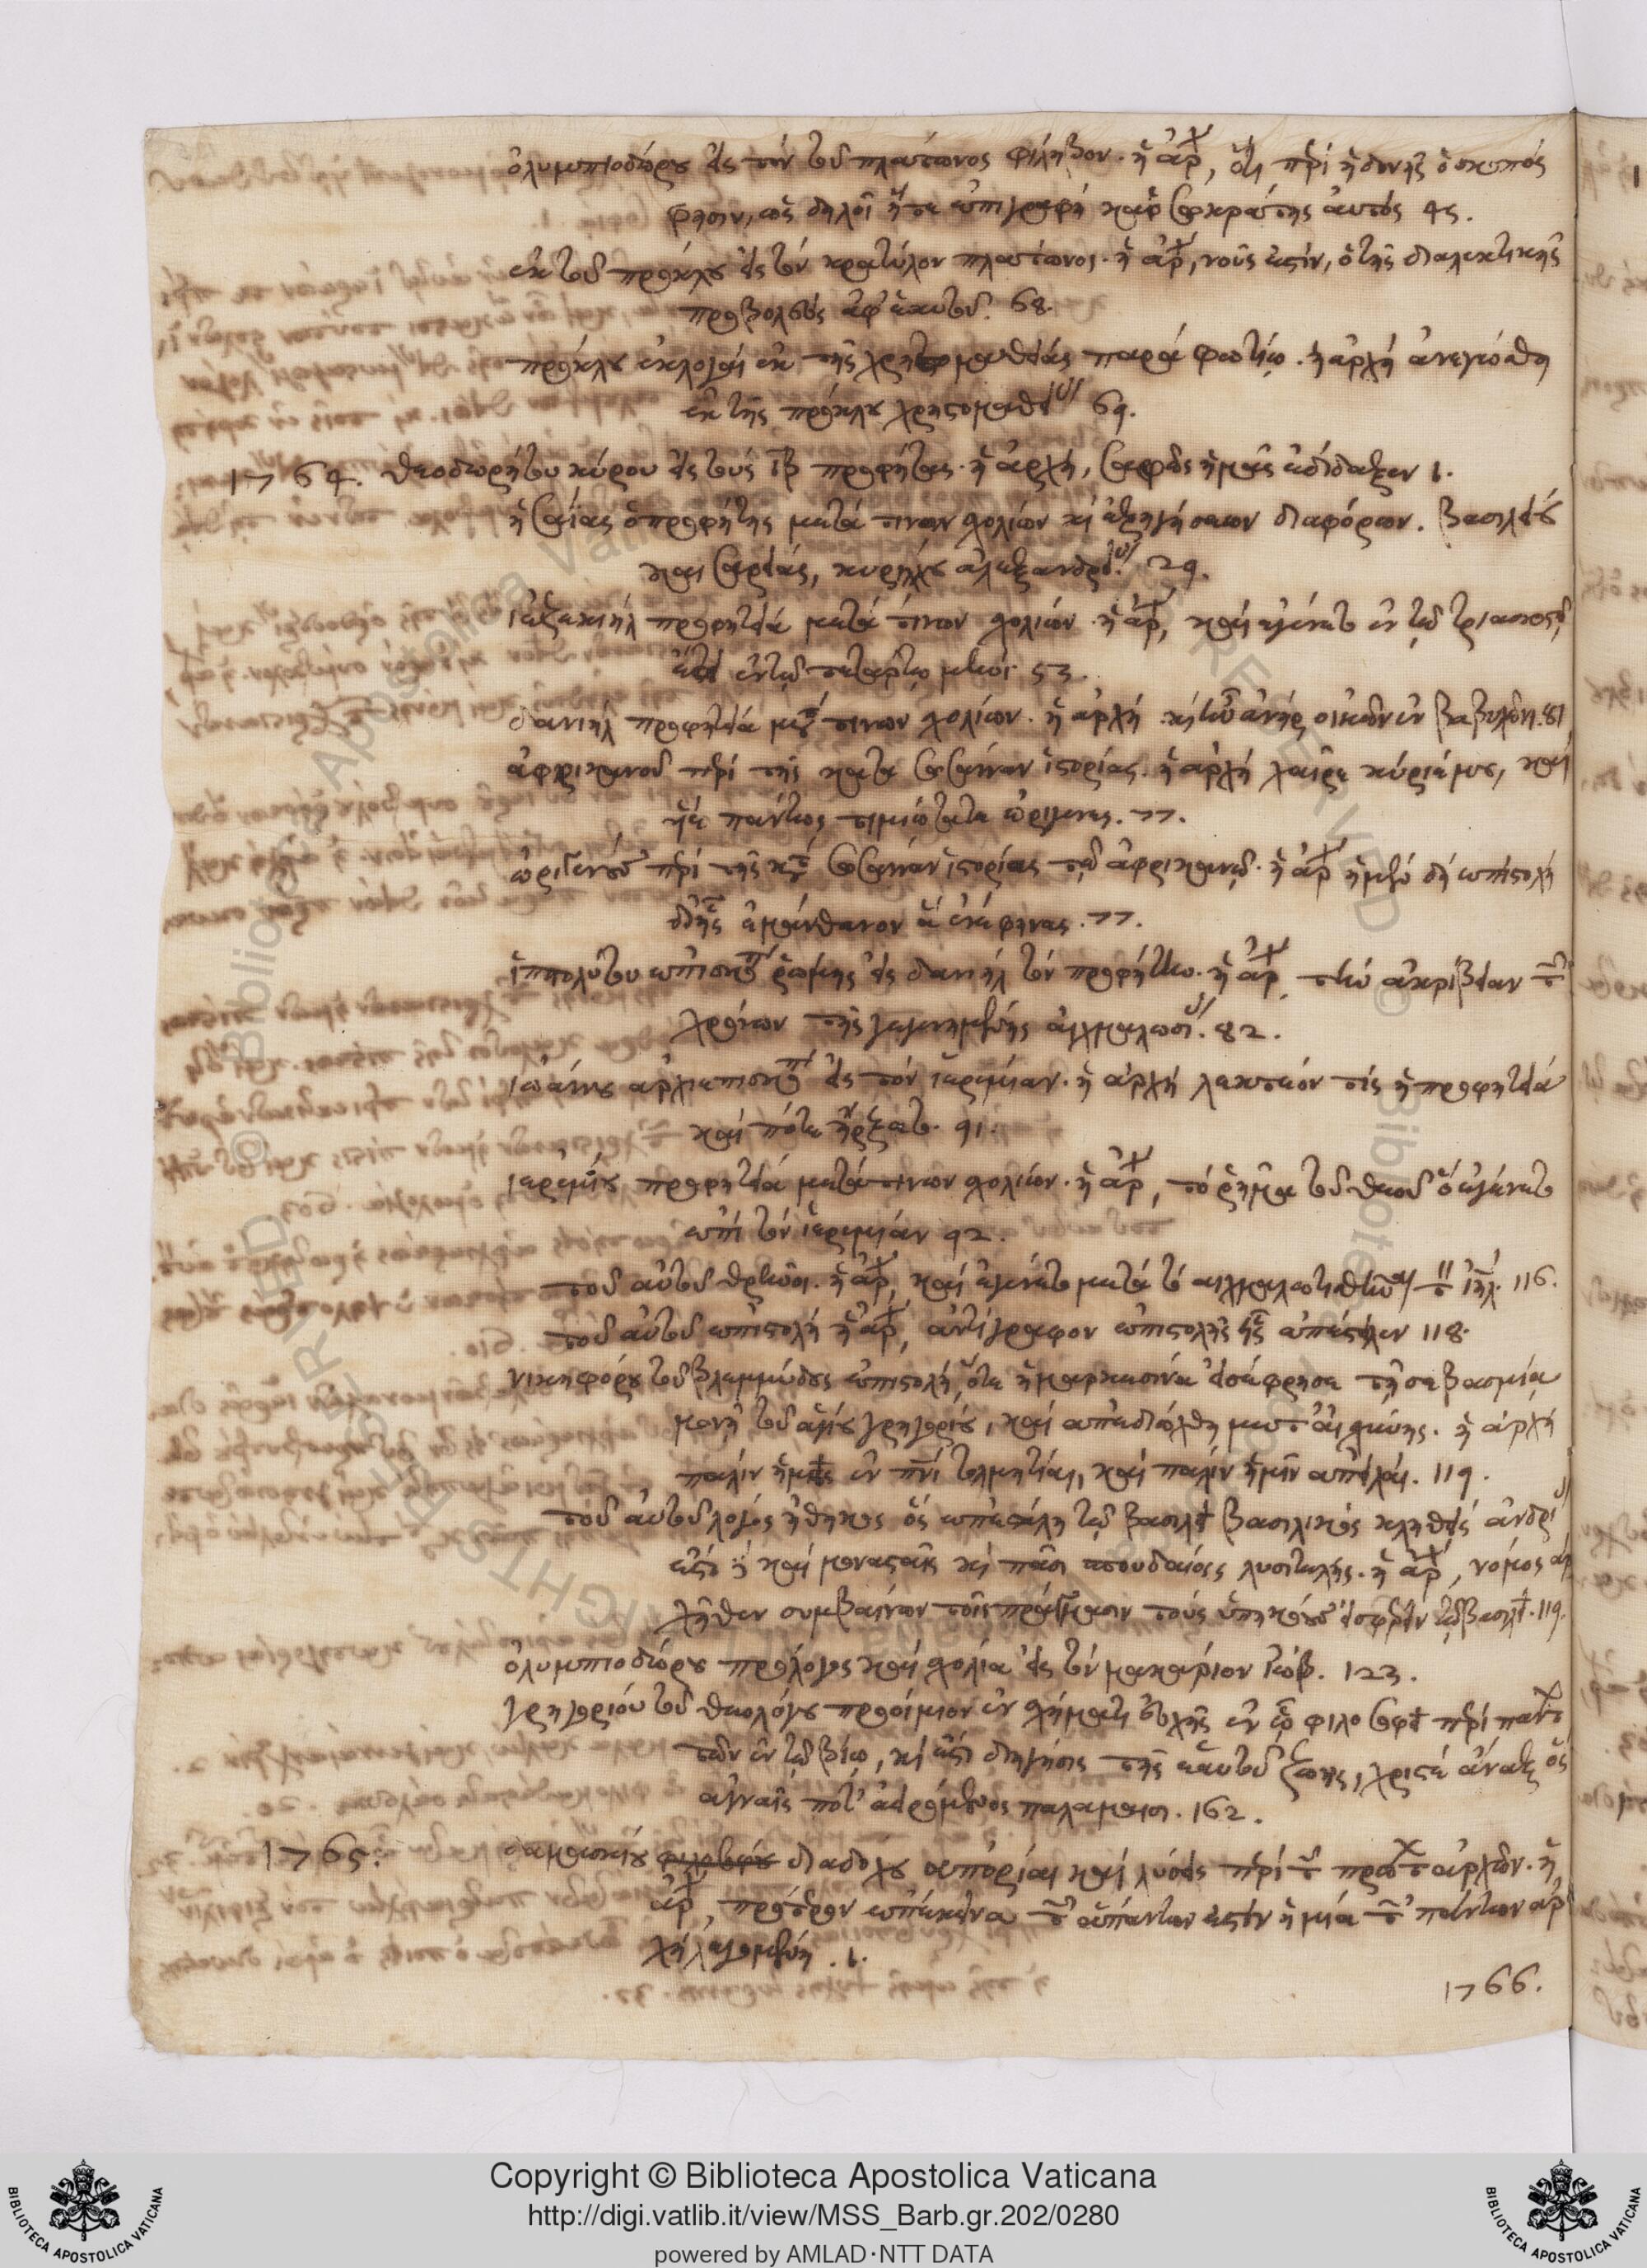 ὀλυμπιοδώρου εἰς τὸν τοῦ πλάτωνος φίληβον. ἡ ἀρχ, ὅτι περὶ ἡδονῆς ὁ σκοπός
φησιν, ὡς δηλοῖ ἥτε ἐπιγραφὴ καὶ ὁ σωκράτης αὐτός 45.
ἐκ τοῦ πρόκλου εἰς τὸν κρατύλον πλάτωνος. ἡ ἀρχ, νοῦς ἐστίν, ὁ τῆς διαλεκτικῆς
προβολεὺς ἀφ' ἑαυτοῦ. 68.
πρόκλου ἐκλογαὶ ἐκ τῆς χρηστομαθείας παρὰ φωτίῳ. ἡ ἀρχὴ ἀνεγνώσθη
ἐκ τῆς πρόκλου χρηστομαθεί 69.
1764. θεοδωρήτου κύρου εἰς τοὺς ιβ προφήτας. ἡ ἀρχή, σαφῶς ἡμᾶς ἐδίδαξεν 1.
ἡσαΐας ὁ προφήτης μετά τινων σχολίων καὶ ἐξηγήσεων διαφόρων. βασιλείου
καισαρείας, κυρίλλου ἀλεξανδρεί. 29.
ἰεζεκιὴλ προφητεία μετά τινων σχολίων. ἡ ἀρχ, καὶ ἐγένετο ἐν τῷ τριακοστῷ
ἔτει ἐν τῷ τετάρτῳ μηνί 53.
δανιὴλ προφητεία μετά τινων σχολίων. ἡ ἀρχή καὶ ἦν ἀνὴρ οἰκῶν ἐν βαβυλῶνι. 81
ἀφρικανοῦ περὶ τῆς κατὰ σωσάνναν ἱστορίας. ἡ ἀρχὴ χαῖρε κύριέ μου, καὶ
υἱὲ πάντως τιμιώτατε ὠρίγενες. 77.
ὠριγένους περὶ τῆς κατὰ σωσάνναν ἱστορίας τῷ ἀφρικανῷ. ἡ ἀρχ ἡ μὲν δὴ ἐπιστολή
δι' ἧς ἐμάνθανον ἃ ἐνέφηνας. 77.
ἱππολύτου ἐπισκόπ ῥώμης εἰς δανιὴλ τὸν προφήτην. ἡ ἀρχ τὴν ἀκρίβειαν τῶν
χρόνων τῆς γεγενημένης αἰχμαλωσί. 82.
ἰωάννου ἀρχιεπισκόπ εἰς τὸν ἱερεμίαν. ἡ ἀρχὴ λεκτέον τίς ἡ προφητεία
καὶ πότε ἤρξατο. 91.
ἱερεμίου προφητεία μετά τινων σχολίων. ἡ ἀρχ, τὸ ῥῆμα τοῦ θεοῦ ὃ ἐγένετο
ἐπὶ τὸν ἱερεμίαν 92.
τοῦ αὐτοῦ θρῆνοι. ἡ ἀρχ, καὶ ἐγένετο μετὰ τὸ αἰχμαλωτισθῆναι τὸν ἰηλ. 116.
τοῦ αὐτοῦ ἐπιστολὴ ἡ ἀρχ, ἀντίγραφον ἐπιστολῆς ἧς ἀπέστειλεν 118.
νικηφόρου τοῦ βλεμμύδους ἐπιστολή, ὅτε ἡ μαρκεσίνα εἰσέφρησε τῇ σεβασμίᾳ
μονῇ τοῦ ἁγίου γρηγορίου, καὶ ἀπεδιώχθη μετ' αἰσχύνης. ἡ ἀρχὴ
πάλιν ἡμεῖς ἐν πνι τολμητίαι, καὶ πάλιν ἡμῖν ἀπειλαί. 119.
τοῦ αὐτοῦ λόγος ἠθικὸς ὃς ἐπεστάλη τῷ βασιλεῖ βασιλικὸς κληθείς ἀνδριάς
ἐστὶ δὲ καὶ μονασταῖς καὶ πᾶσι σπουδαίοις λυσιτελής. ἡ ἀρχ, νόμος ἀρ
χῆθεν συμβαίνων τοῖς πράγμασιν τοὺς ὑπηκόους εἰσφέρειν τῷ βασιλεῖ. 119.
ὀλυμπιοδώρου πρόλογος καὶ σχόλια εἰς τὸν μακάριον ἰώβ. 123.
γρηγορίου τοῦ θεολόγου προοίμιον ἐν σχήματι εὐχῆς ἐν ᾧ φιλοσοφεῖ περὶ πάντ
τῶν ἐν τῷ βίῳ, καὶ ἔστι διήγησις τῆς ἑαυτοῦ ζωῆς, χριστὲ ἄναξ ὃς
ἁγναῖς ποτ' ἀειρομένοις παλάμαισι. 162.
1765. δαμασκίου φιλοσόφου διαδόχου ἀπορίαι καὶ λύσεις περὶ τῶν πρώτ ἀρχῶν. ἡ
ἀρχ, πρότερον ἐπέκεινα τῶν ἁπάντων ἐστὶν ἡ μία τῶν πάντων ἀρ
χὴ λεγομένη. 1.
1766.
Copyright © Biblioteca Apostolica Vaticana
http://digi.vatlib.it/view/MSS_Barb.gr.202/0280
powered by AMLAD·NTT DATA
BIBLIOTECA APOSTOLICA VATICANA
BIBLIOTECA APOSTOLICA VATICANA